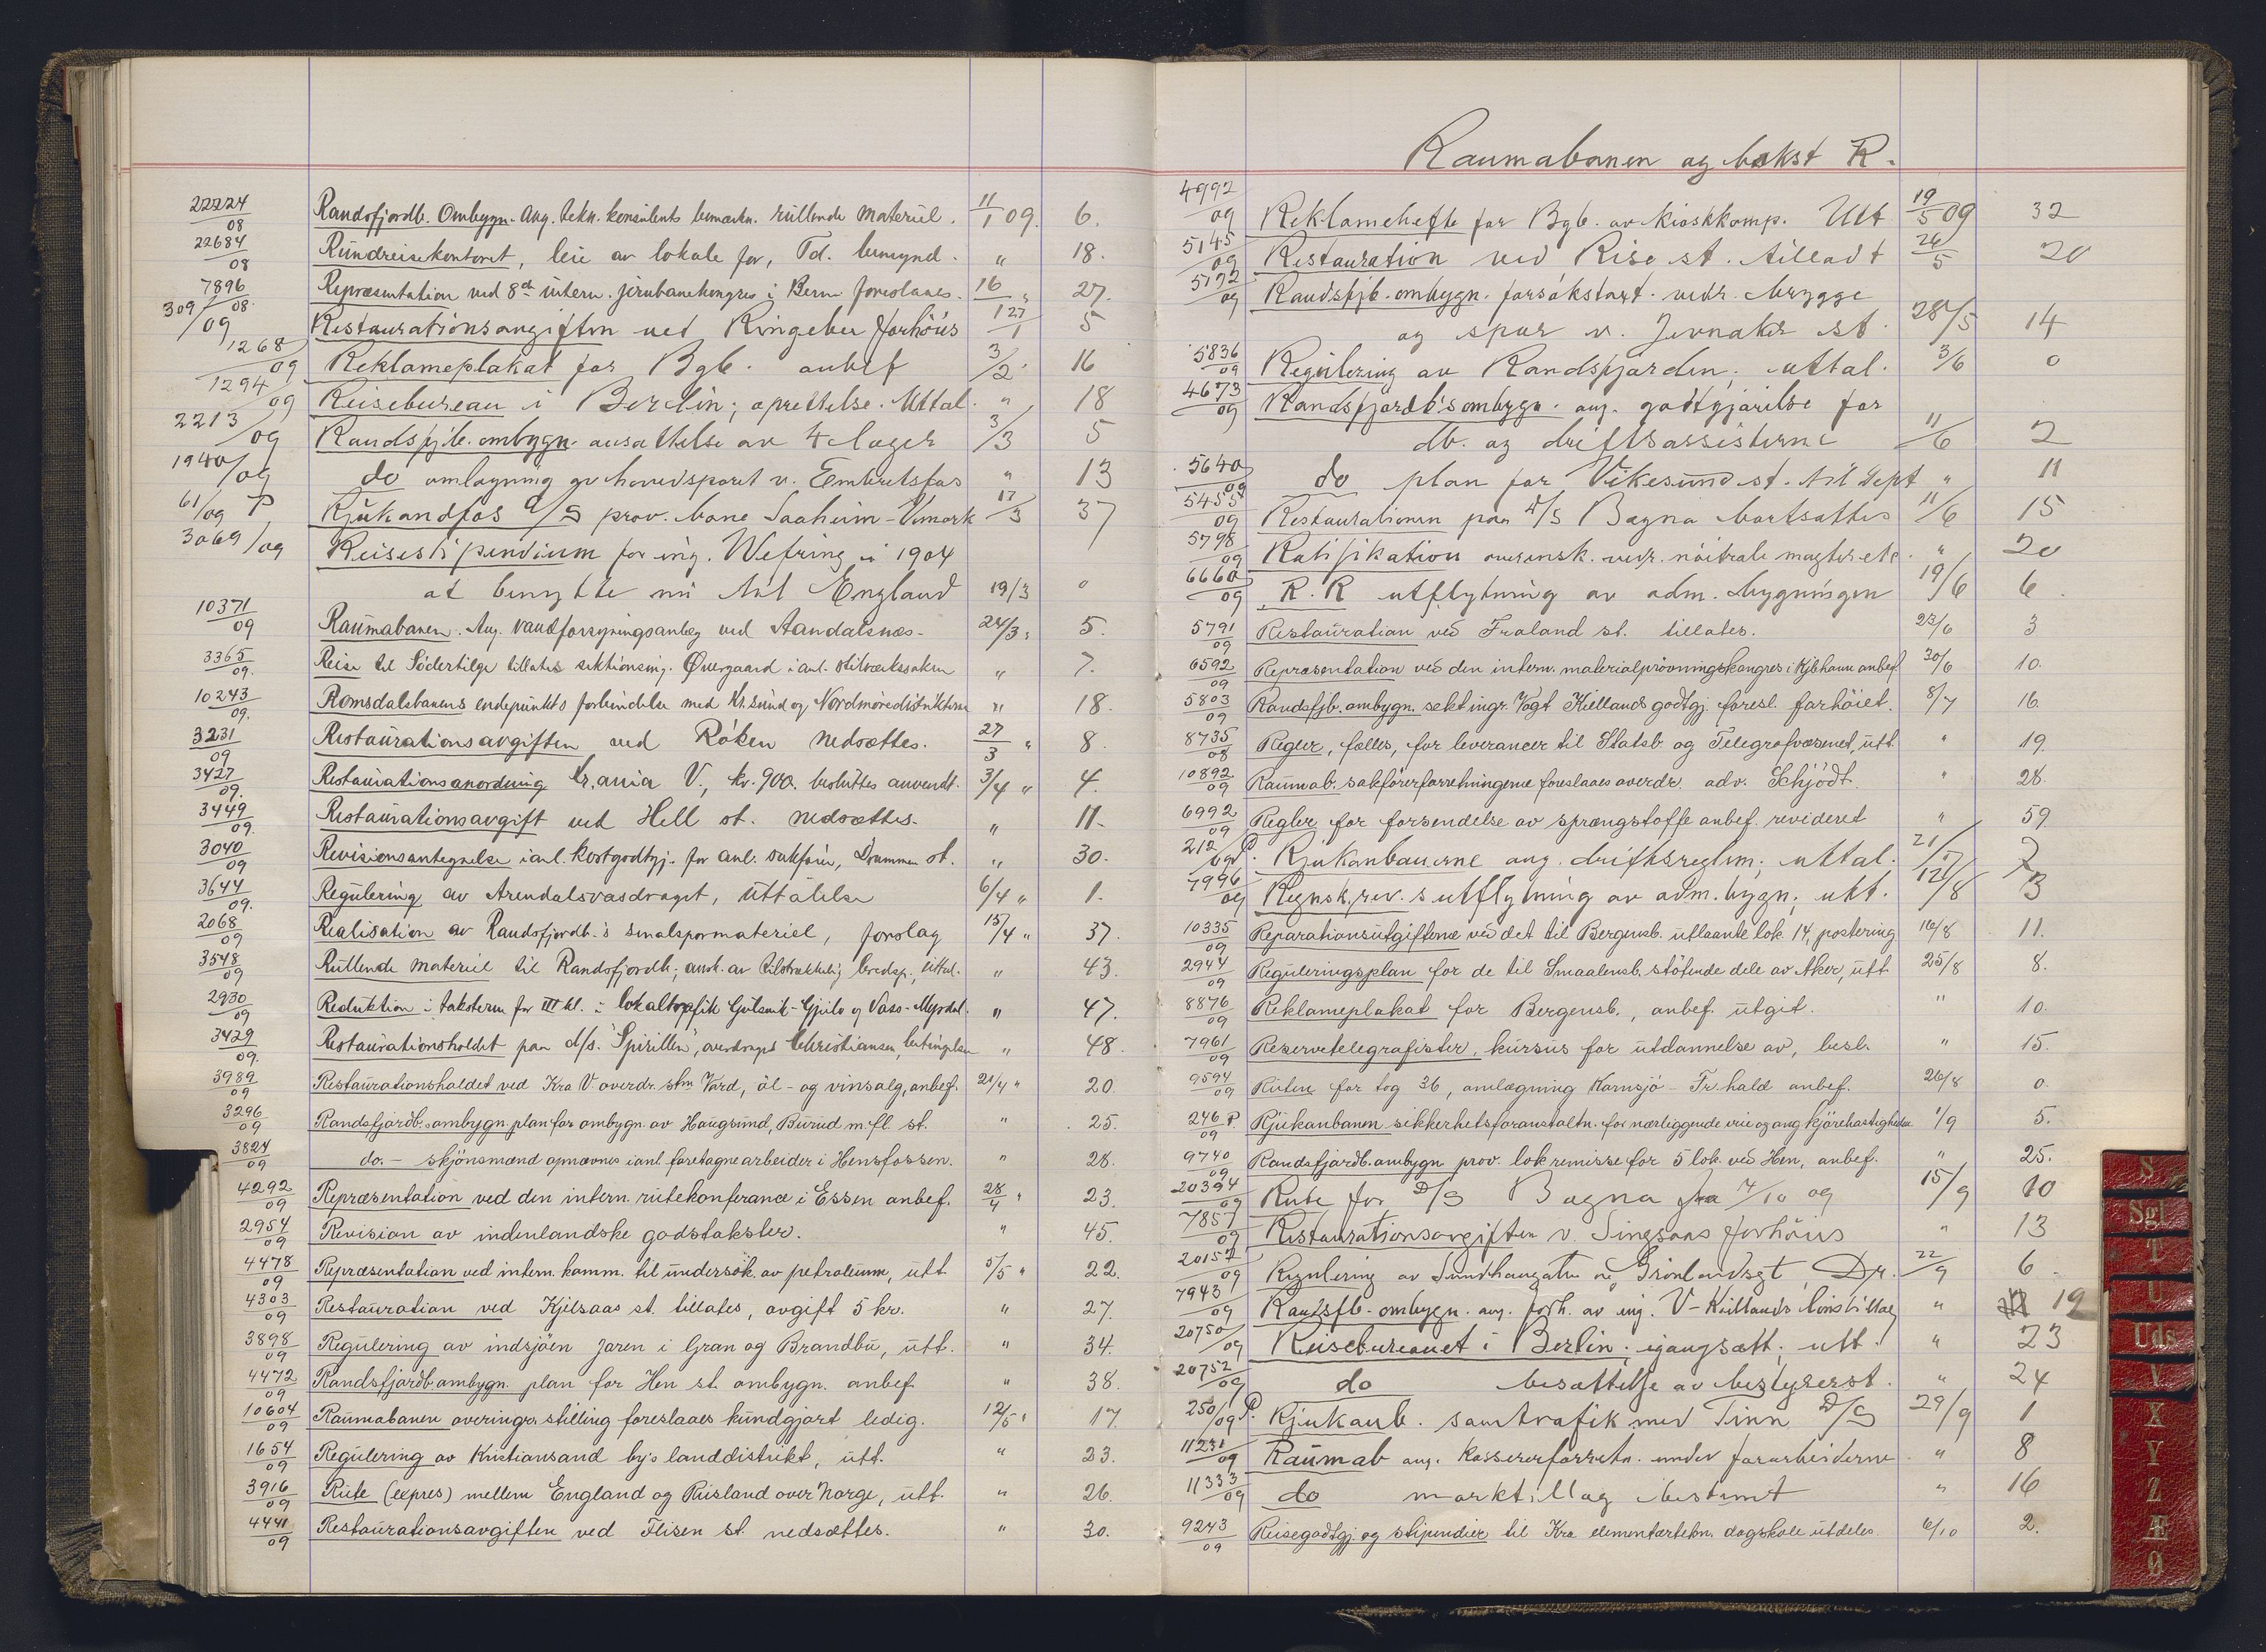 22224/08 Randsfjordb. Ombygn. Ang. tekn. konsulents bemærkn. rullende materiel. 11/1 09. 6.
22684/08 Rundreisekontoret, leie av lokale for, Td. bemynd. " 18.
7896/08. Repræsentation ved 8de intern. jernbanekongres i Bern foreslaaes. 16/1 " 27.
309/09 Restaurationsavgiften ved Ringebu forhöies 27/1 5
1268/09 Reklameplakat for Bgb. anbef 3/2 16
1294/09 Reisebureau i Berlin; oprettelse. Uttal. " 18
2213/09 Randsfjb. ombygn. ansættelse av 4 3/3 5
1940/09 do omlægning av hovedsporet v. Embretsfos " 13
61/09 P Rjukandfos A/S prov. bane Saaheim - Vemork 17/3 37
3069/09 Reisestipendium for ing. Wefring i 1904
at benytte nu til England 19/3 0
10371/09 Raumabanen. Ang. vandforsyningsanlæg ved Aandalsnæs. 24/3 " 5.
3365/09. Reise til Södertelge tillates sektionsing. Övergaard i anl. " 7.
10243/09. Romsdalsbanens endepunkts forbindelse med Kr.sund og Nordmöredistrikterne " 18.
3231/09 Restaurationsavgiften ved Röken nedsættes. 27/3 " 8.
3427/09. Restaurationsanordning Kr.ania V., kr. 900. besluttes anvendt. 3/4 " 4.
3449/09. Restaurationsavgift ved Hell st. nedsættes. " 11.
3040/09 Revisionsantegnelse i anl. kostgodtgj. for anl. sakförer, Drammen st. " 30.
3644/09. Regulering av Arendalsvasdraget, uttalelse 6/4 " 1.
2068/09 Realisation av Randsfjordb.'s smalspormateriel, forslag 15/4 " 37.
3548/09 Rullende materiel til Randsfjordb; ansk. av tilstrækkelig bredsp., uttal. " 43.
2930/09 Reduktion i taksterne for III kl. i lokaltrafik Gulsvik - Gjeilo og Voss - Myrdal. " 47.
3429/09. Restaurationsholdet paa d/s. "Spirillen", overdrages Christiansen, betingelser " 48.
3989/09 Restaurationsholdet ved Kra V. overdr. stm Vard, öl- og vinsalg, anbef. 21/4 " 20.
3296/09 Randsfjordb. ombygn. plan for ombygn. av Haugsund, Burud m.fl. st. " 25.
3824/09 do. - skjönsmænd opnævnes i anl. foretagne arbeider i Hensfossen. " 28.
4292/09 Repræsentation ved den intern. rutekonferance i Essen anbef. 28/4 " 23.
2954/09 Revision av indenlandske godstakster. " 45.
4478/09 Repræsentation ved intern. komm. til undersök. av petroleum, utt. 5/5 " 22.
4303/09 Restauration ved Kjelsaas st. tillates, avgift 5 kr. " 27.
3898/09 Regulering av indsjöen Jaren i Gran og Brandbu, utt. " 34.
4472/09 Randsfjordb. ombygn. plan for Hen st. ombygn. anbef. " 38.
10604/09 Raumabanen overingrs. stilling foreslaaes kundgjort ledig. 12/5 " 17.
1654/09 Regulering av Kristiansand by's landdistrikt, utt. " 23.
3916/09 Rute (expres) mellem England og Rusland over Norge, utt. " 26.
4441/09 Restaurationsavgiften ved Flisen st. nedsættes. " 30.
Raumabanen og bokst R.
4992/09 Reklamehefte for Bgb. av kioskkomp. Utt 19/5 09 32
5145/09 Restauration ved Rise st. tilladt 26/5 20
5172/09 Randsfjb. ombygn. forsökstart. vedr. brygge
og spor v. Jevnaker st. 28/5 14
5836/09 Regulering av Randsfjorden; uttal. 3/6 0
4673/09 Randsfjordb's ombygn. ang. godtgjörelse for
db. og driftsassisterne 11/6 2
5640/09 do plan for Vikesund st. til Dept " 11
5455/09 Restaurationen paa D/S Bægna bortsættes 11/6 15
5798/09 Ratifikation overensk. vedr. nöitrale magter etc. " 20
6660/09 R.R utflytning av adm. bygningen 19/6 6.
5791/09 Restauration ved Froland st. tillates. 23/6 3
6592/09 Repræsentation ved den intern. materialprövningskongres i Kjbhavn anbef. 30/6 10.
5803/09 Randsfjb. ombygn. sekt.ingr. Vogt Kiellands godtgj. foresl. forhöiet. 8/7 16.
8735/08 Regler, fælles, for leverancer til Statsb. og Telegrafvæsenet, utt. " 19.
10892/09 Raumab. sakförerforretningerne foreslaaes overdr. adv. Schjödt. " 28.
6992/09 Regler for forsendelse av sprængstoffe anbef. revideret " 59.
212/09 P. Rjukanbanerne ang. driftsreglm; uttal. 21/7 2
7996/09 Regnsk.rev.s utflytning av adm. bygn; utt. 12/8 3
10335/09 Reparationsutgifterne ved det til Bergensb. utlaante lok. 14, postering 16/8 11.
2944/09 Reguleringsplan for de til Smaalensb. stötende dele av Aker, utt. 25/8 8.
8876/09 Reklameplakat for Bergensb., anbef. utgit. " 10.
7961/09 Reservetelegrafister, kursus for utdannelse av, besl. " 15.
9594/09 Rute for tog 36, omlægning Kornsjö - Fr.hald anbef. 26/8 0.
246/09 P. Rjukanbanen sikkerhetsforanstaltn. for nærliggende veie og ang kjörehastigheden 1/9 5.
9740/09 Randsfjordb. ombygn. prov. lokremisse for 5 lok. ved Hen, anbef. " 25.
20394/09 Rute for D/S Bægna fra 4/10 09 15/9 10
7857/09 Restaurationsavgiften v. Singsaas forhöies " 13
20157/09 Regulering av Sundhauggaten og Grönlandsgt, Dr. 22/9 6.
7943/09 Randsfb. ombygn. ang. forh. av ing. V-Kiellands lönstillæg " 12
20750/09 Reisebureauet i Berlin; igangsætt; utt. " 23
20752/09 do besættelse av bestyrerst. " 24
250/09 P. Rjukanb. samtrafik med Tinn D/S 29/9 1
11231/09 Raumab ang. kassererforretn. under forarbeiderne " 8
11333/09 do marktillæg bestemt " 16
9243/09 Reisegodtgj. og stipendier til Kra elementærtekn. dagskole utdeles 6/10 2.
S
Sgl
T
U
Uds
V
X
Y
Z
Æ
Ø